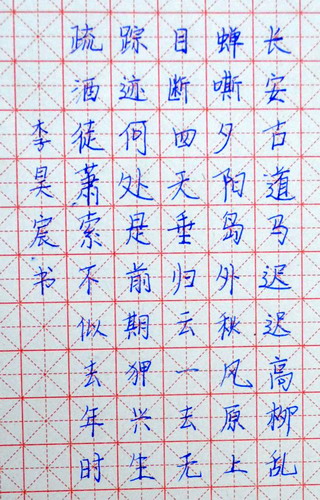 长安古道马迟迟高柳乱
蝉嘶夕阳岛外秋风原上
目断四天垂归云一去无
踪迹何处是前期狎兴生
疏酒徒萧索不似去年时
李昊宸书